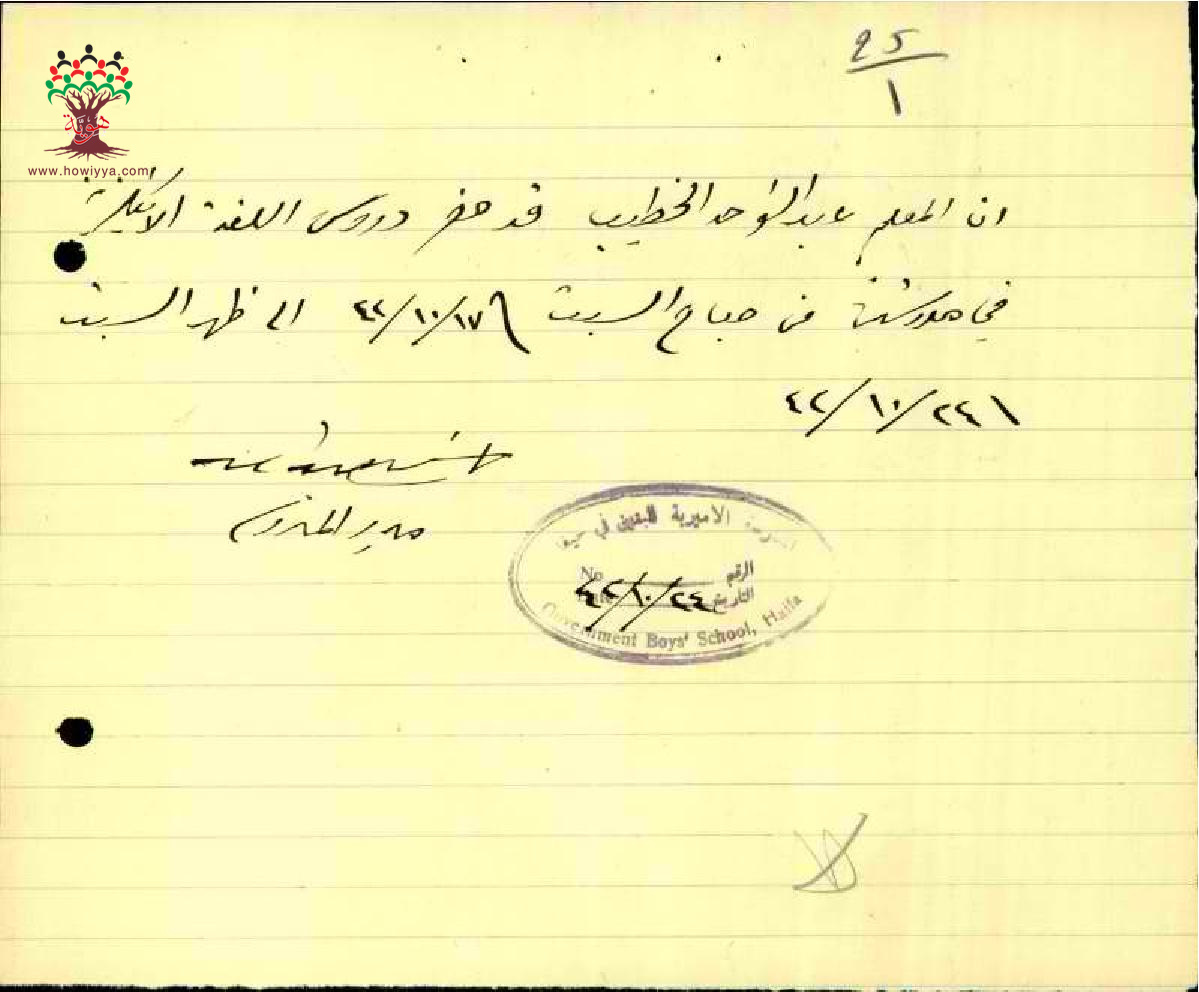 25
1
هوية
www.howiyya.com
ان المعلم عبد الواحد الخطيب قد حضر دروس اللغة الانكليزية
في مدرستنا من صباح السبت ٤٢/١٠/١٧ الى ظهر السبت
٤٢/١٠/٢٤
مدير المدرسة
المدرسة الاميرية للبنين في حيفا
No. الرقم
التاريخ ٤٢/١٠/٢٤
Government Boys' School, Haifa